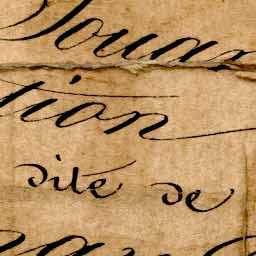 Douan
tion
dité de